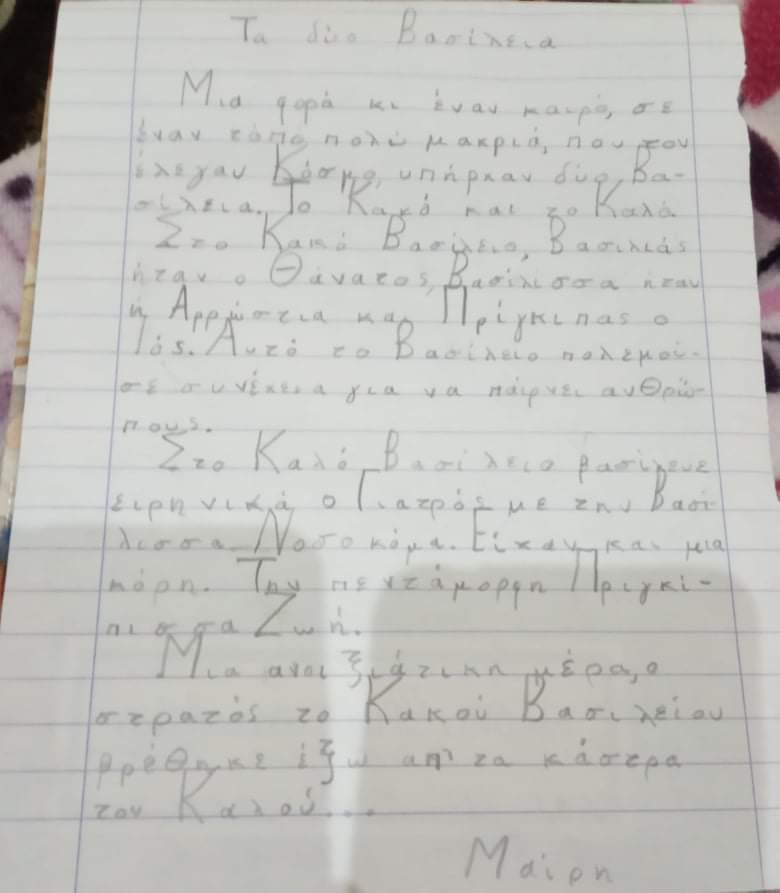 Τα δύο Βασίλεια
Μια φορά κι έναν καιρό, σε
έναν τόπο πολύ μακριά, που τον
έλεγαν Κόσμο, υπήρχαν δύο Βα-
σίλεια. Το Κακό και το Καλό.
Στο Κακό Βασίλειο, Βασιλιάς
ήταν ο Θάνατος, Βασίλισσα ήταν
η Αρρώστια και Πρίγκιπας ο
Ιός. Αυτό το Βασίλειο πολεμού-
σε συνέχεια για να παίρνει ανθρώ-
πους.
Στο Καλό Βασίλειο βασίλευε
ειρηνικά ο Γιατρός με την Βασί
λισσα Νοσοκόμα. Είχαν και μια
κόρη. Την πεντάμορφη Πριγκί-
πισσα Ζωή.
Μια ανοιξιάτικη μέρα, ο
στρατός το Κακού Βασιλείου
βρέθηκε έξω απ' τα κάστρα
του Καλού...
Μαίρη